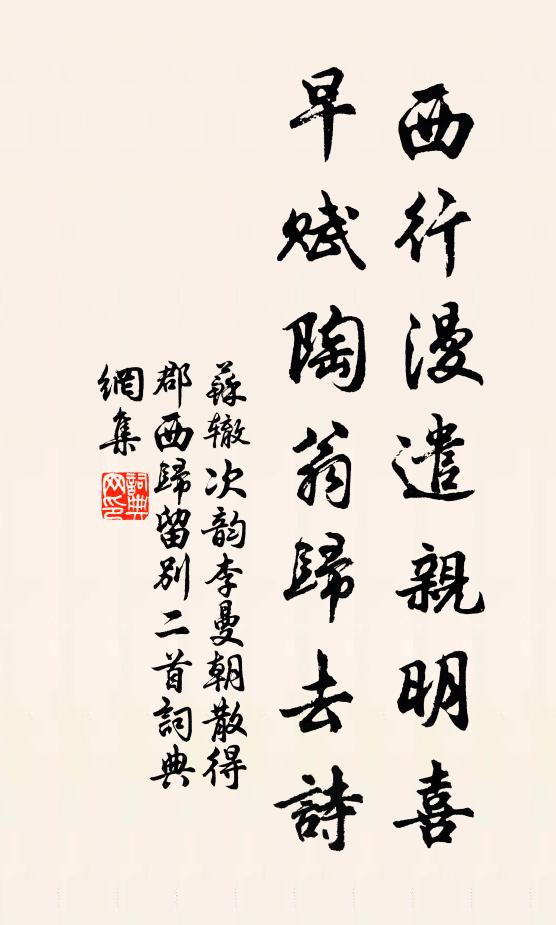 西行漫遣親明喜
早賦陶翁歸去詩
蘇辙次韵李曼朝散得
郡西歸留别二首詞典
網集
詞典网印